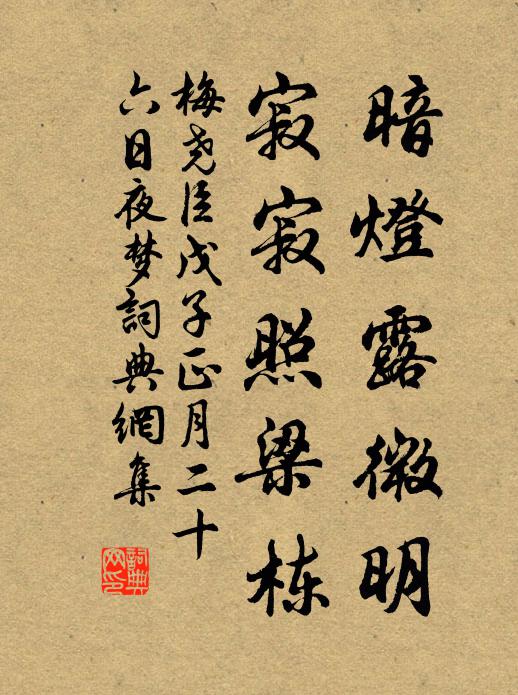 暗燈露微明
寂寂照梁栋
梅尧臣戊子正月二十
六日夜梦詞典網集
詞典网印